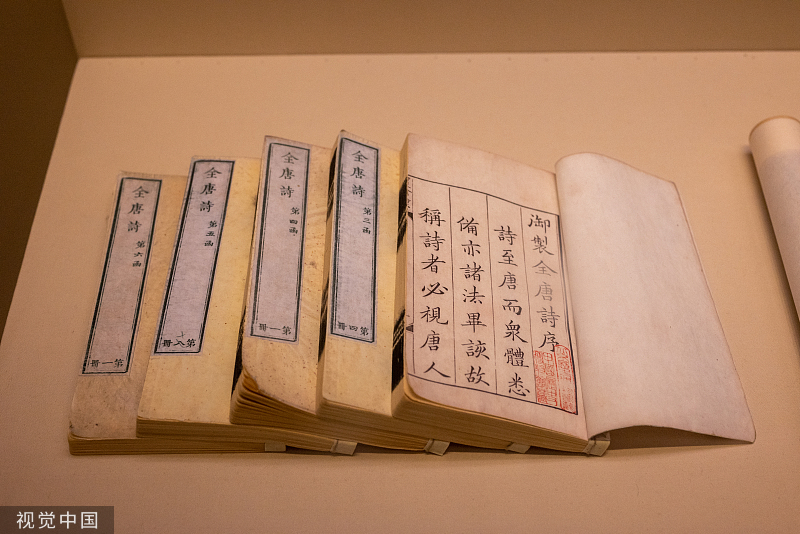 御製全唐詩序
詩至唐而衆體悉
備亦諸法畢該故
稱詩者必視唐人
全唐詩
第三函
第四冊
全唐詩
第四函
第一冊
全唐詩
第五函
第八冊
全唐詩
第六函
第一冊
视觉中国